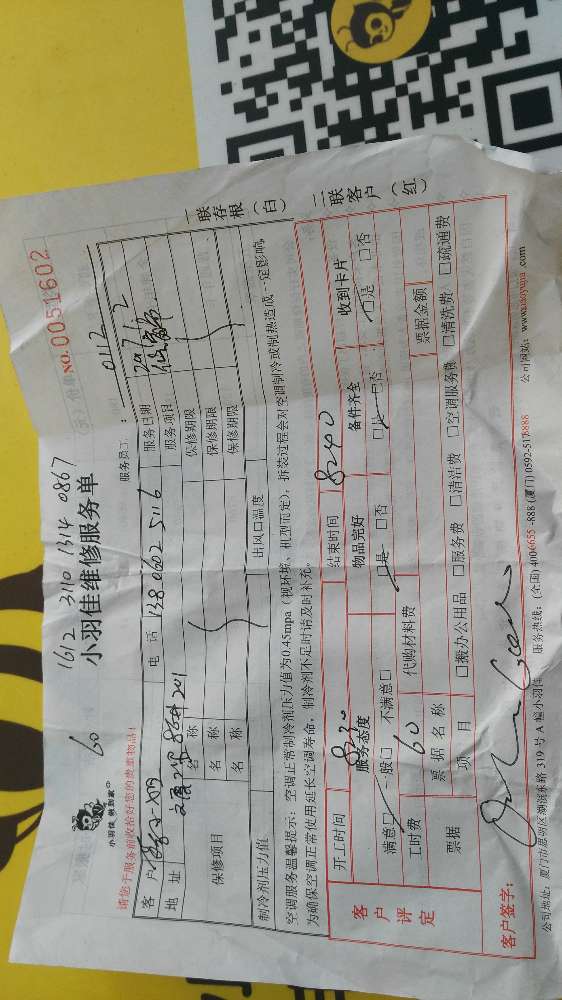 1612 3110 1314 0867
NO.0051602
60
小羽佳维修服务单
小羽佳 做到家
服务员工: 0112
请您于服务前收拾好您的贵重物品!
客户
电话 138 0602 5116
服务日期
地址 201
服务项目
保修项目
名称
保修期限
名称
保修期限
名称
保修期限
制冷剂压力值
出风口温度
空调服务温馨提示: 空调正常制冷剂压力值为0.45mpa (视环境、机型而定), 拆装过程会对空调制冷或制热造成一定影响
为确保空调正常使用延长空调寿命, 制冷剂不足时请及时补充。
一联存根(白)
二联客户(红)
客户评定
开工时间 8:30
结束时间 8:40
服务态度
物品完好
备件齐全
收到卡片
满意□ 一般□ 不满意□
□是 □否
□是 □否
□是 □否
工时费 60
代购材料费
票据
票据名称
票据金额
项目
□搬办公用品 □服务费 □清洁费 □空调服务费 □清洗费 □疏通费
客户签字:
公司地址: 厦门市思明区湖滨东路 319 号 A 幢小羽佳 服务热线: (全国) 4006655-888 (厦门) 0592-5178888 公司网站: www.xiaoyujia.com